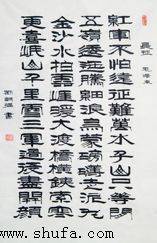 長征 毛澤東
紅軍不怕遠征難萬水千山只等閒
五嶺逶迤騰細浪烏蒙磅礴走泥丸
金沙水拍雲崖暖大渡橋橫鐵索寒
更喜岷山千里雪三軍過後盡開顏
書
www.shufa.com